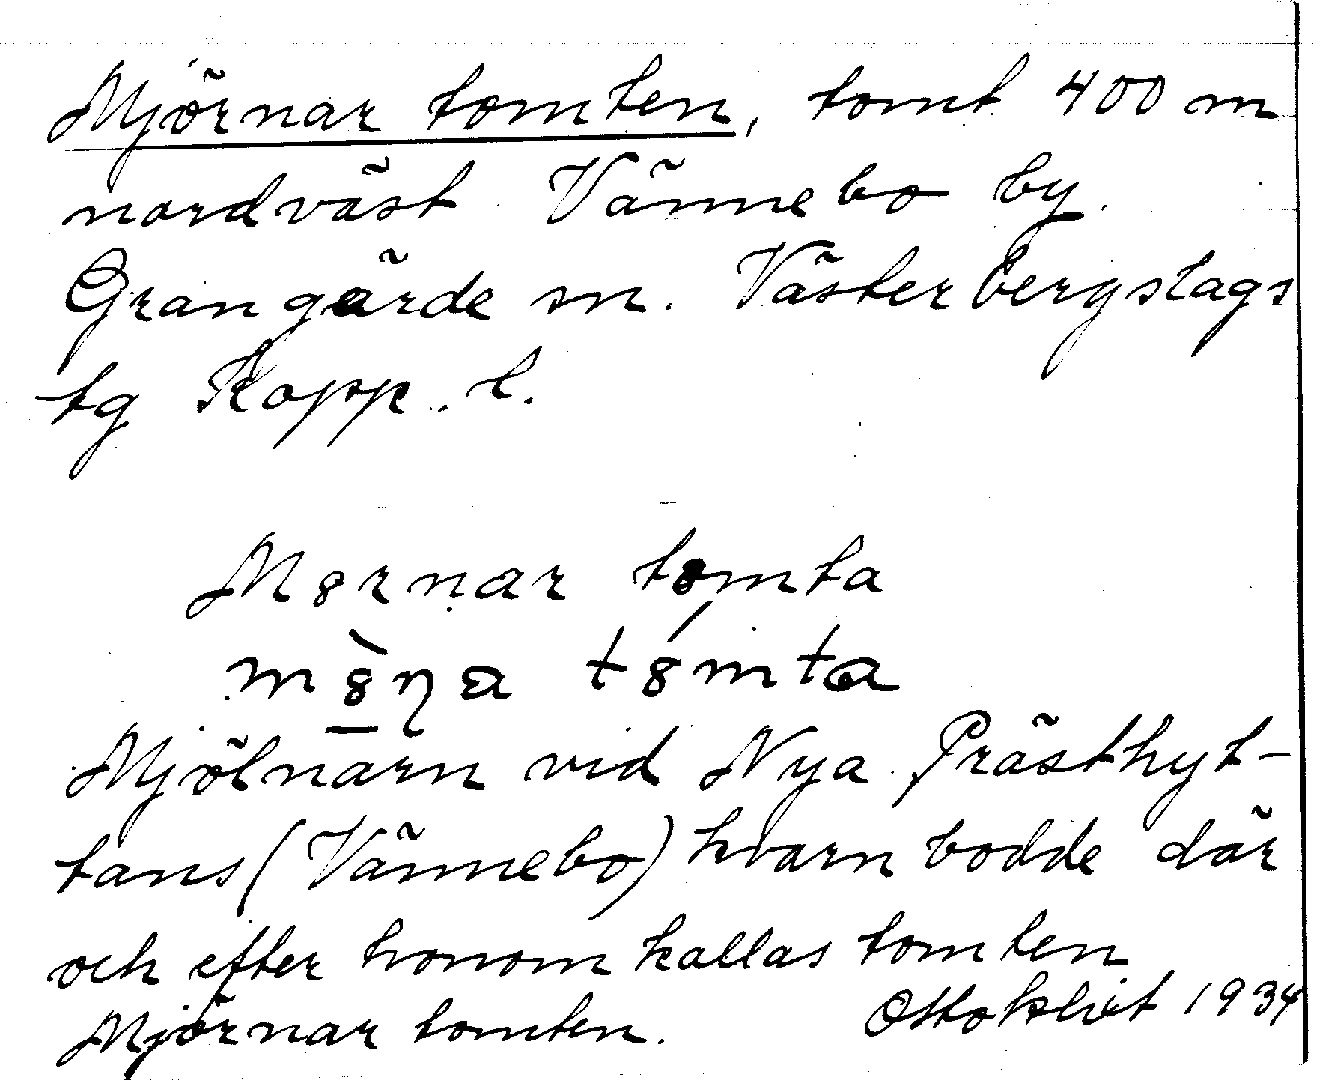 Mjörnar tomten, tomt 400 m
nordväst Vännebo by.
Grangärde sn. Västerbergslags
tg Kopp. l.
M8rnar t8mta
m8̀ŋa t8́mta
Mjölnarn vid Nya Prästhyt-
tans (Vännebo) kvarn bodde där
och efter honom kallas tomten
Mjörnar tomten. Otto Blixt 1934